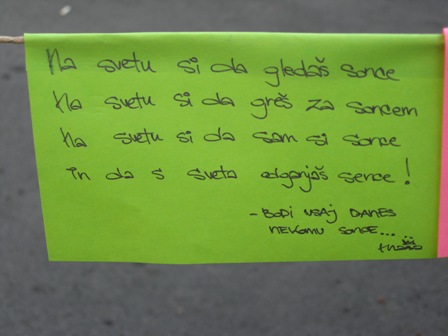 Na svetu si da gledaš sonce
Na svetu si da greš za soncem
Na svetu si da sam si sonce
in da s sveta odganjaš sence!
- BODI VSAJ DANES
NEKOMU SONCE...